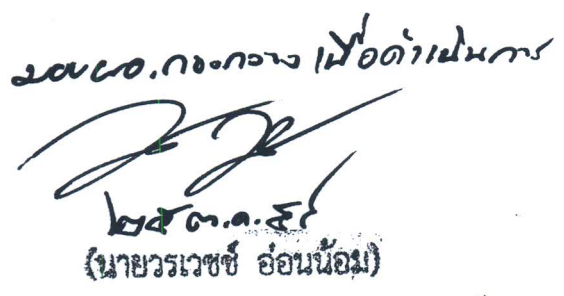 มอบ ผอ.กอง.กวาง เพื่อดำเนินการ
๒๕ ต.ค. ๕๙
(นายวรเวชช์ อ่อนน้อม)